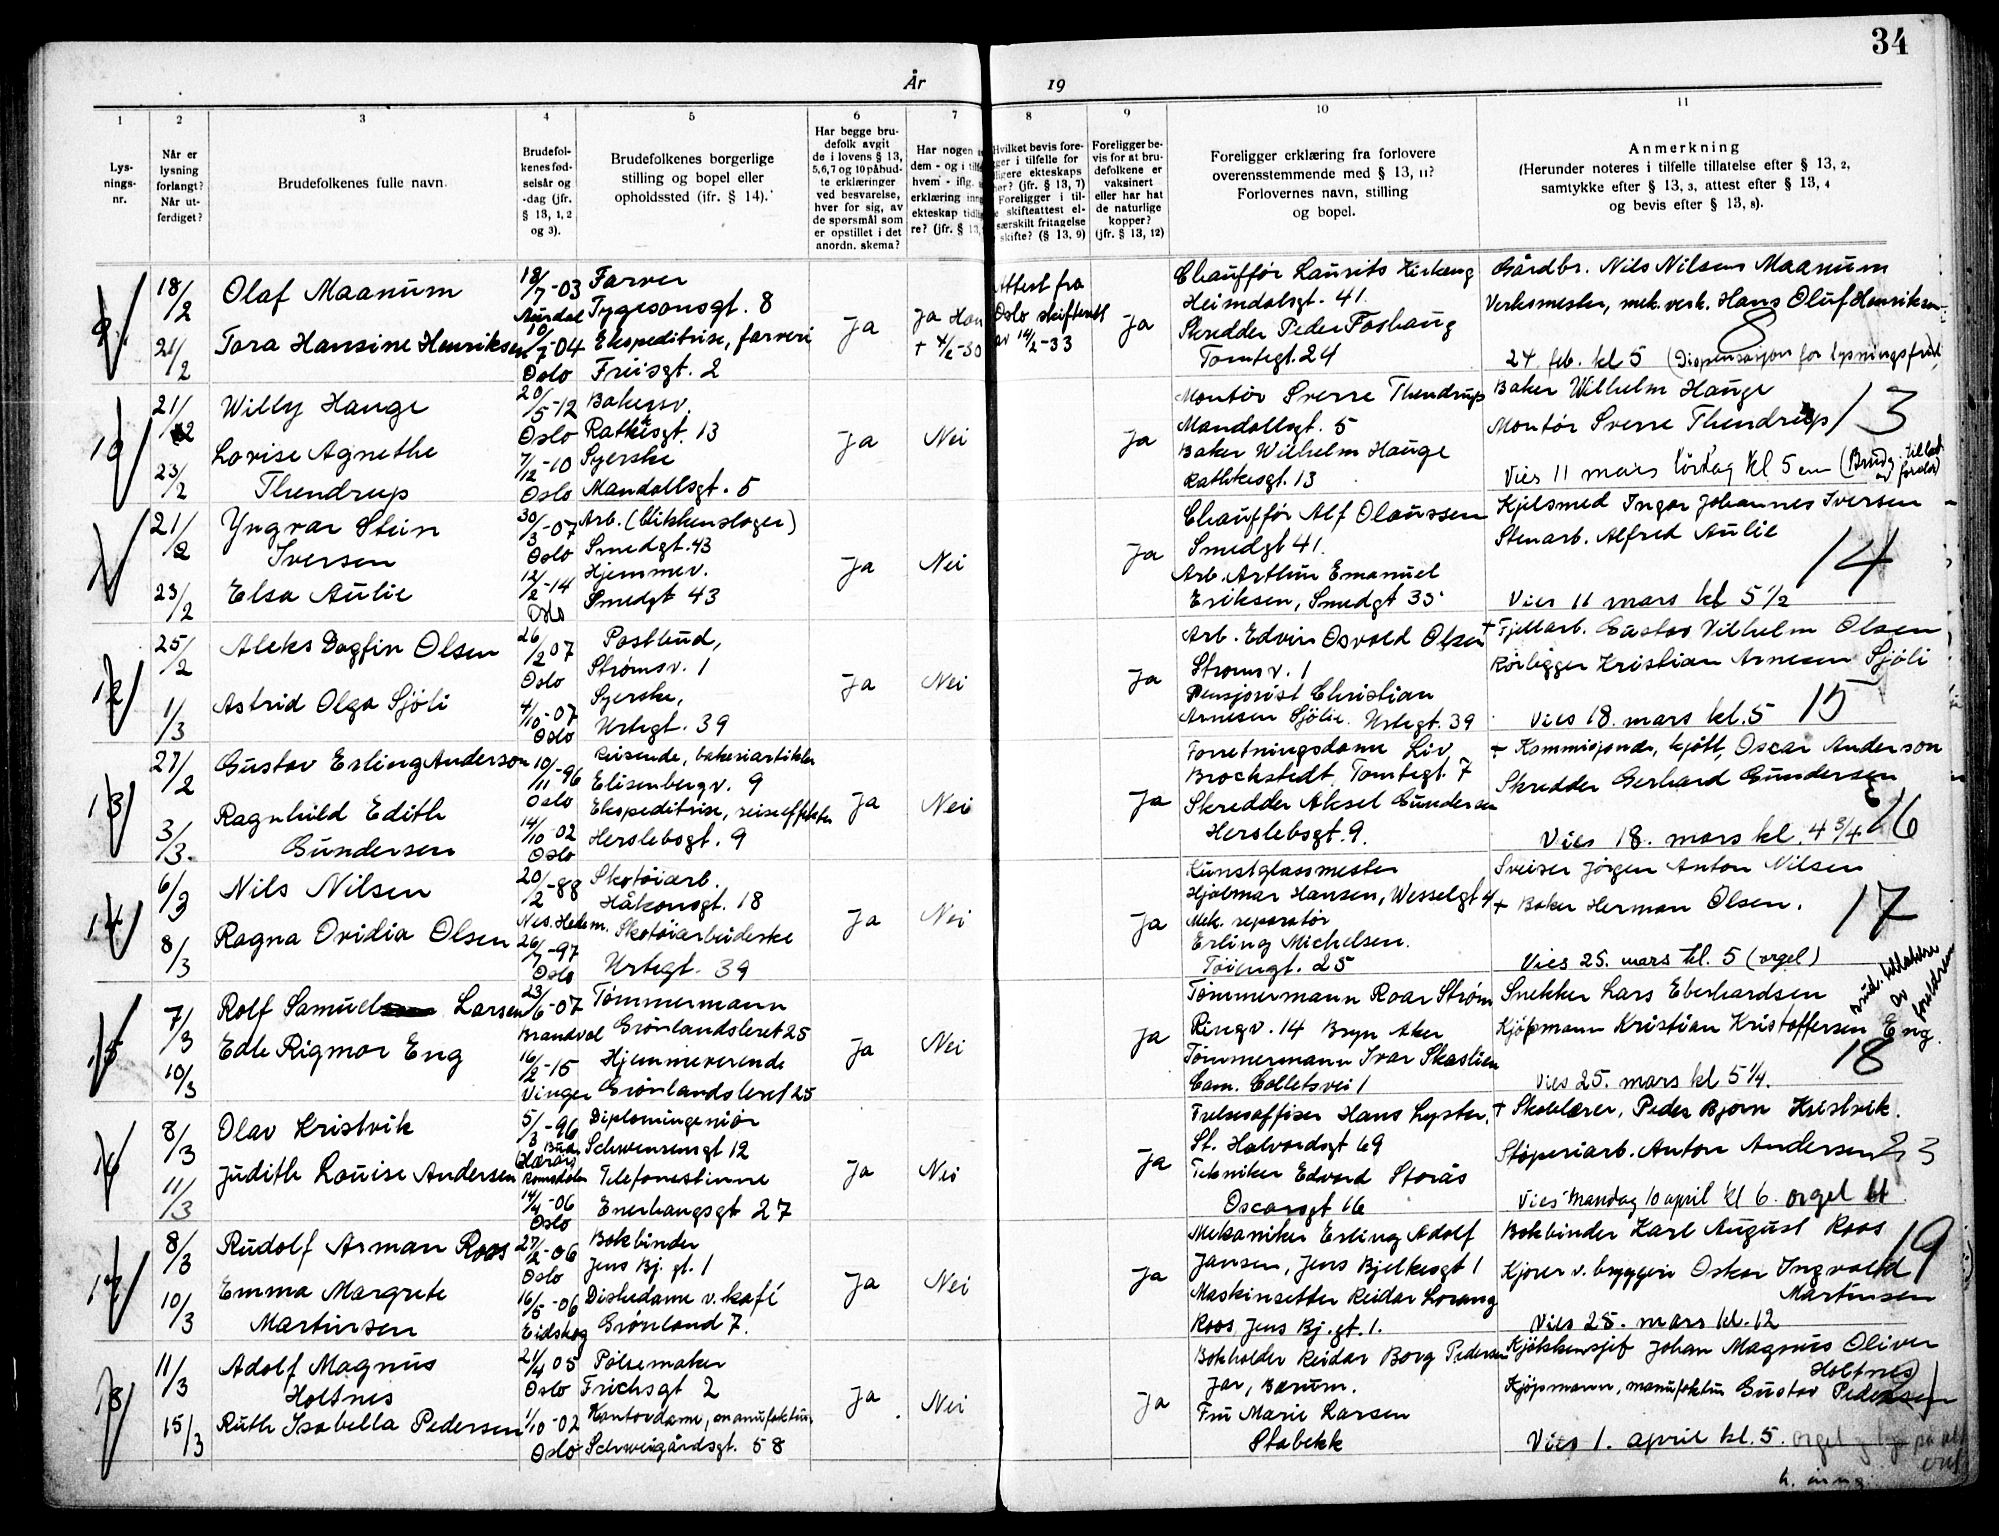 34
År 19
1 2 3 4 5 6 7 8 9 10 11
Lys-
nings-
nr.
Når er
lysning
forlangt?
Når ut-
ferdiget?
Brudefolkenes fulle navn.
Brudefol-
kenes fød-
selsår og
-dag (jfr.
§ 13, 1, 2
og 3).
Brudefolkenes borgerlige
stilling og bopel eller
opholdssted (jfr. § 14).
Har begge bru-
defolk avgit
de i lovens § 13,
5, 6, 7 og 10 påhud-
te erklæringer
ved besvarelse,
hver for sig, av
de spørsmål som
er opstillet i det
anordn. skema?
Har nogen
dem - og i tilf
hvem - iflg.
erklæring inn
ekteskap tidl
re? (jfr. § 13,
Hvilket bevis fore-
ger i tilfelle for
ligere ekteskaps
hør? (jfr. § 13, 7)
Foreligger i til-
e skifteattest el-
særskilt fritagelse
skifte? (§ 13, 9)
Foreligger be-
vis for at bru-
defolkene er
vaksinert
eller har hat
de naturlige
kopper?
(jfr. § 13, 12)
Foreligger erklæring fra forlovere
overensstemmende med § 13, 11?
Forlovernes navn, stilling
og bopel.
Anmerkning
(Herunder noteres i tilfelle tillatelse efter § 13, 2,
samtykke efter § 13, 3, attest efter § 13, 4
og bevis efter § 13, 8).
9.
18/2
21/2
Olaf Maanum
Tora Hansine Henriksen
18/7-03
Aurdal
10/7-04
Oslo
Farver
Tygesonsgt. 8
Ekspeditrise, farveri
Friisgt. 2
Ja
Ja Han
+ 4/2-30
Attest fra
Oslo skifterett
av 14/2-33
Ja
Chauffør Laurits Kirkeng
Heimdalsgt. 41.
Skredder Peder Foshaug
Tomtegt. 24
Gårdbr. Nils Nilsen Maanum
Verksmester, mek. verk. Hans Oluf Henriksen
8
24 feb. kl 5 (Dispensasjon for lysningsfrist)
10
21/2
23/2
Willy Hauge
Lovise Agnethe
Thendrup
20/5-12
Oslo
7/12-10
Oslo
Bakersv.
Rathkesgt. 13
Syerske
Mandallsgt. 5
Ja
Nei
Ja
Montør Sverre Thendrup
Mandallsgt. 5
Baker Wilhelm Hauge
Rathkesgt. 13
Baker Wilhelm Hauge
Montør Sverre Thendrup 13
Vies 11 mars lördag kl 5 em (Brudg. tillat.
av foreldr)
11
21/2
23/2
Yngvar Stein
Iversen
Elsa Aulie
30/3-07
Oslo
12/2-14
Oslo
Arb. (blikkenslager)
Smedgt. 43
Hjemmev.
Smedgt 43
Ja
Nei
Ja
Chauffør Alf Olaussen
Smedgt 41.
Arb. Arthur Emanuel
Eriksen, Smedgt 35
Kjelsmed Ingar Johannes Iversen
Stenarb. Alfred Aulie
14
Vies 11 mars kl 5 1/2
12
25/2
1/3
Aleks Dagfin Olsen
Astrid Olga Sjöli
26/2 07
Oslo
4/10-07
Oslo
Postbud,
Strømsv. 1
Syerske,
Urtegt. 39
Ja
Nei
Ja
Arb. Edvin Osvald Olsen
Strømsv. 1
Pensjonist Christian
Arnesen Sjölie. Urtegt. 39
+ Fjellarb. Gustav Vilhelm Olsen
Rørligger Kristian Arnesen Sjöli
Vies 18. mars kl. 5 15
13
27/2
3/3.
Gustav Erling Anderson
Ragnhild Edith
Gundersen
10/11-96
Oslo
14/10-02
Oslo
Reisende, bakeriartikler
Elisenbergv. 9
Ekspeditrise, reiseeffekter
Herslebsgt. 9
Ja
Nei
Ja
Forretningsdame Liv
Brochstedt, Tomtegt. 7
Skredder Aksel Gundersen
Herslebsgt. 9.
+ Kommisjonær, kjøtt, Oscar Anderson
Skredder Gerhard Gundersen
Vies 18. mars kl. 4 3/4 16
14
6/3
8/3
Nils Nilsen
Ragna Ovidia Olsen
20/2-88
Nes. Hedem.
26/7-97
Oslo
Skotøiarb.
Håkonsgt. 18
Skotøiarbeiderske
Urtegt. 39
Ja
Nei
Ja
Kunstglassmester
Hjalmar Hansen, Wesselgt 4
Mek. reparatør
Erling Michelsen.
Töiengt. 25
Sveiser Jörgen Anton Nilsen
+ Baker Herman Olsen.
17
Vies 25. mars kl. 5 (orgel)
15
7/3
10/3
Rolf Samuel Larsen
Edle Rigmor Eng
23/6-07
Brandval
16/2-15
Vinger
Tømmermann
Grønlandsleret 25
Hjemmeværende
Grønlandsleret 25
Ja
Nei
Ja
Tömmermann Roar Strøm
Ringv. 14 Bryn Aker
Tömmermann Ivar Skaslien
Cam. Colletsvei 1
Snekker Lars Eberhardsen
Kjøpmann Kristian Kristoffersen Eng.
brud. tillatelse
av
foreldrene
18
Vies 25. mars kl 5 1/4.
16
8/3
11/3
Olav Kristvik
Judith Louise Andersen
5/3-96
Bud
Romsdalen
14/4-06
Oslo
Diplomingeniør
Schwensensgt 12
Telefonestinne
Enerhaugsgt 27
Ja
Nei
Ja
Frelsesoffiser Hans Lyster.
St. Halvardsgt 69
Tekniker Edvard Storås
Oscarsgt 16
+ Skolelærer, Peder Bjørn Kristvik.
Støperiarb. Anton Andersen 23
Vies mandag 10 april kl 6. orgel
17
8/3
10/3
Rudolf Arman Roos
Emma Margrete
Martinsen
27/2-06
Oslo
16/5-06
Eidskog
Bokbinder
Jens Bj. gt. 1
Diskedame v. kafé
Grønland 7.
Ja
Nei
Ja
Mekaniker Erling Adolf
Jansen, Jens Bjelkesgt 1
Maskinsetter Reidar Lorang
Roos Jens Bj. gt. 1.
Bokbinder Karl August Roos
Kjører v. bryggeri Oskar Ingvald
Martinsen
19
Vies 25. mars kl. 12
18
11/3
15/3
Adolf Magnus
Holtnes
Ruth Isabella Pedersen
21/4 05
Oslo
1/10-02
Oslo
Pølsemaker
Frichsgt 2
Kontordame, manufaktur,
Schweigårdsgt. 58
Ja
Nei
Ja
Bokholder Reidar Borg Pedersen
Jar, Bærum.
Fru Marie Larsen
Stabekk
Kjøkkensjef Johan Magnus Oliver
Holtnes
Kjøpmann, manufaktur Gustav Pedersen
Vies 1. april kl. 5. orgel